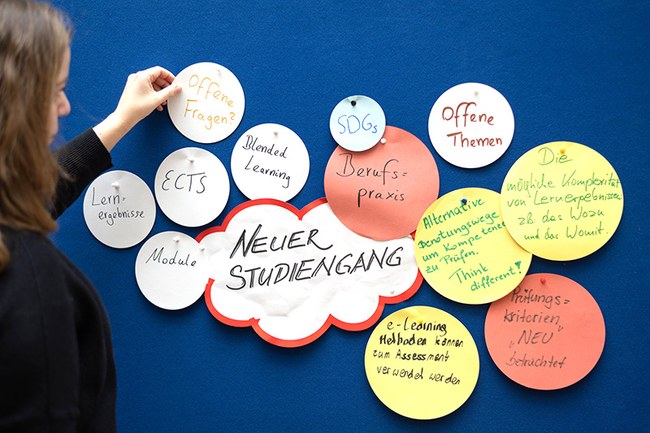 Offene
Fragen?
Blended
Learning
ECTS
Lern-
ergebnisse
Module
NEUER
STUDIENGANG
SDGs
Berufs=
praxis
Offene
Themen
Die
mögliche Komplexität
von Lernerpebnissen
zB das Wozu
und das Womit.
Alternative
um Kompetenzen
zu Prüfen.
Think
different!
Prüfungs=
kriterien
"NEU"
betrachtet
e-Learning
Methoden können
zum Assessment
verwendet werden